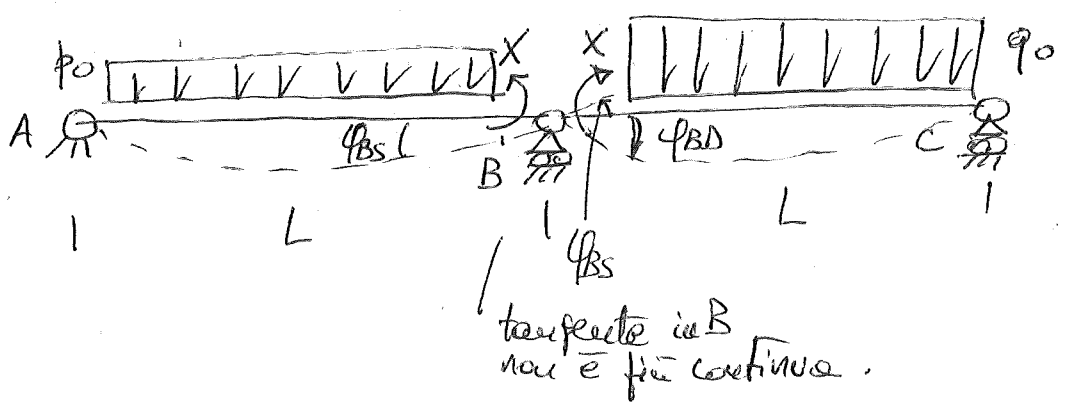 p₀ X X q₀
A φBS B φBD C
L L
φBS
tangente in B
non è più continua.